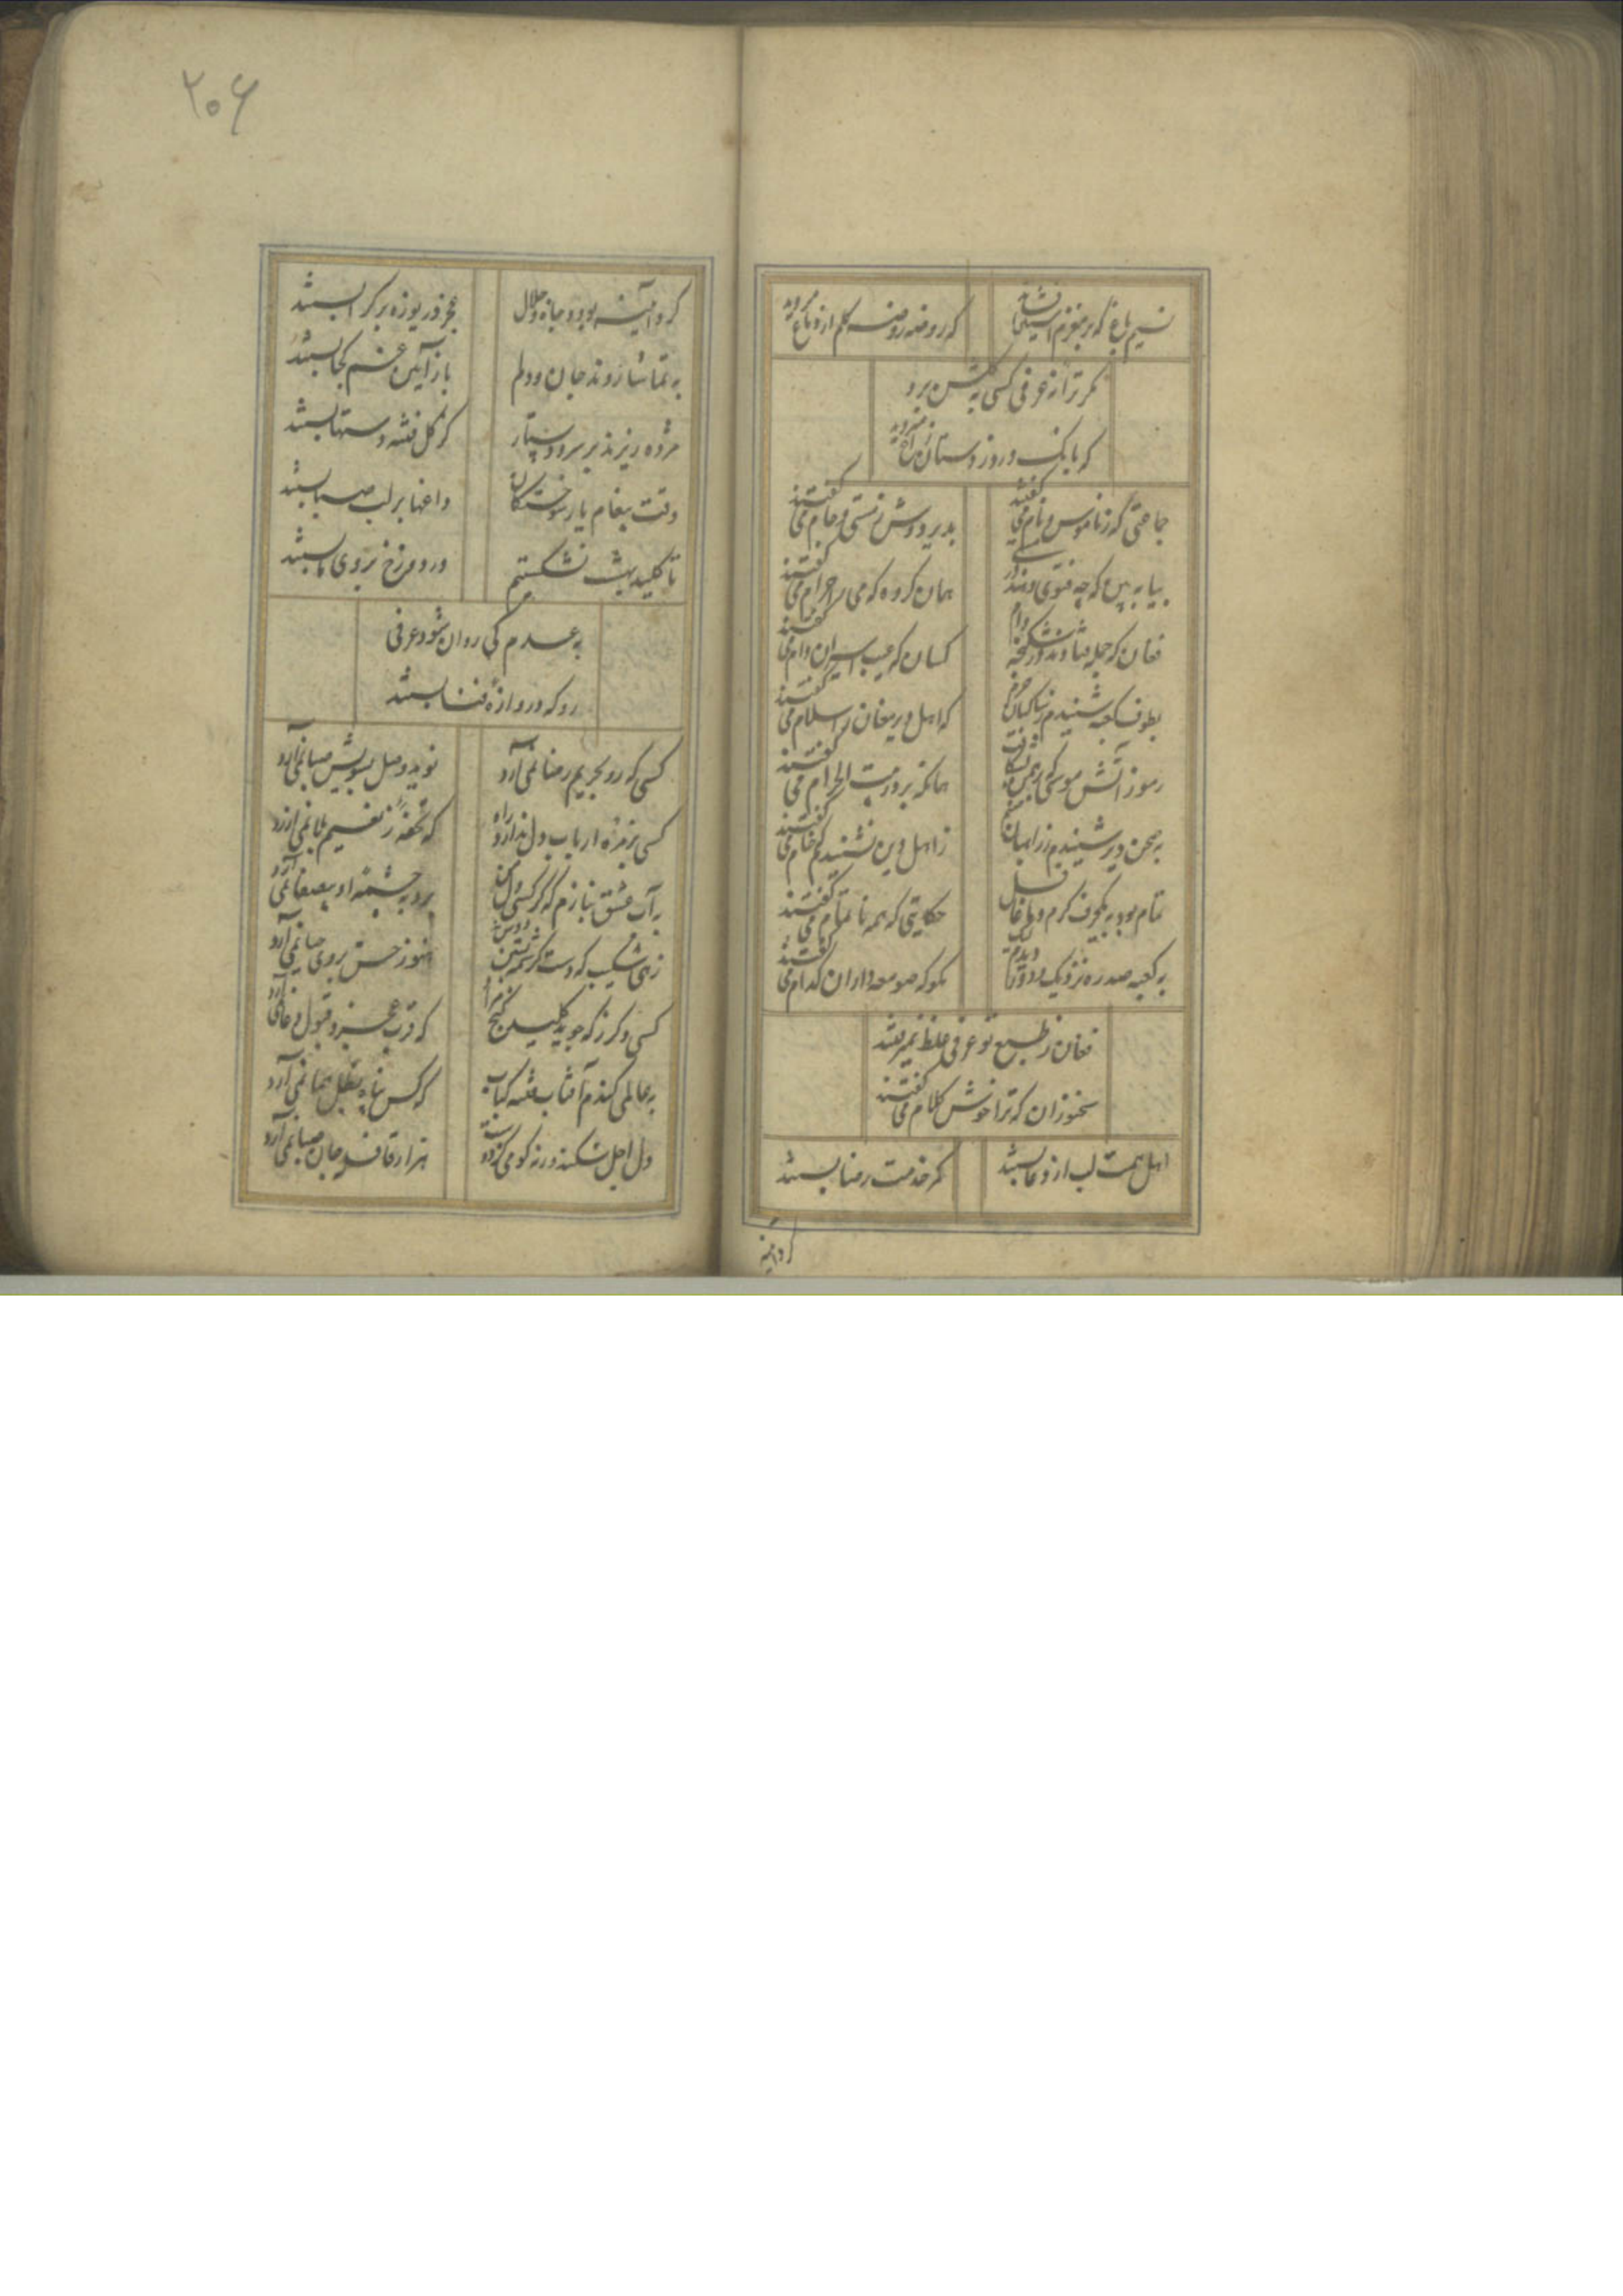 نسیم باغ که بر مغزم آستین افشاند
که روضه روضه گلم از دماغ میروید
مگر ترانه عرفی کسی به گلشن برد
که بانگ درد ز دستان زاغ میروید
جماعتی که ز ناموس و نام می گفتند
بدیر دوش ز مستی و جام می گفتند
بیا به بین که چه فتوی دهند در مستی
همان گروه که می را حرام می گفتند
فغان که جمله فتادند در شکنجه دام
کسان که عیب اسیران دام می گفتند
بطوف کعبه شنیدم ز ساکنان حرم
که اهل دیر مغان را سلام می گفتند
رموز آتش موسی که
همانکه بر در بیت الحرام می گفتند
به صحن دیر شنیدم ز راهبان
ز اهل دین نشنیدم خام می گفتند
تمام بود به یکحرف گرم و ما غافل
حکایتی که همه ناتمام می گفتند
به کعبه صد ره نزدیک بود و دیدم
بگو که صومعه داران کدام می گفتند
فغان ز طبع تو عرفی غلط نمیگفتند
سخنوران که ترا خوش کلام می گفتند
اهل همت لب از دعا بستند
کمر خدمت رضا بستند
گرد آینه
۲۰۶
گرد آیینه بود جاه و جلال
عجز دریوزه بر گدا بستند
به تماشا روند جان و دلم
باز آیین غم کجا بستند
مژده ریزند بر سر و دستار
کز گل فتنه دستها بستند
وقت پیغام یار سوختگان
داغها بر لب صبا بستند
تا کلید بهشت نشکستم
در دوزخ بروی ما بستند
به عدم کی روان شود عرفی
رو که دروازه فنا بستند
کسی که رو بحریم رضا نمی آرد
نوید وصل بسویش صبا نمی آرد
کسی بزمره ارباب دل ندارد راه
که تحفه ز نعیم بلا نمی آرد
به آب عشق بنازم که گر کسی دل
برد به چشمه او بیصفا نمی آرد
زهی شکیب که دست کرشمه بستن
هنوز حسن بروی حیا نمی آرد
کسی دگر ز که جوید کلید گنج مراد
که قرب عجز و قبول دعا نمی آرد
به عالمی کندم آفتاب فتنه کباب
که کس پناه بظل هما نمی آرد
دل اجل شکند ورنه
هزار قافله جان صبا نمی آرد